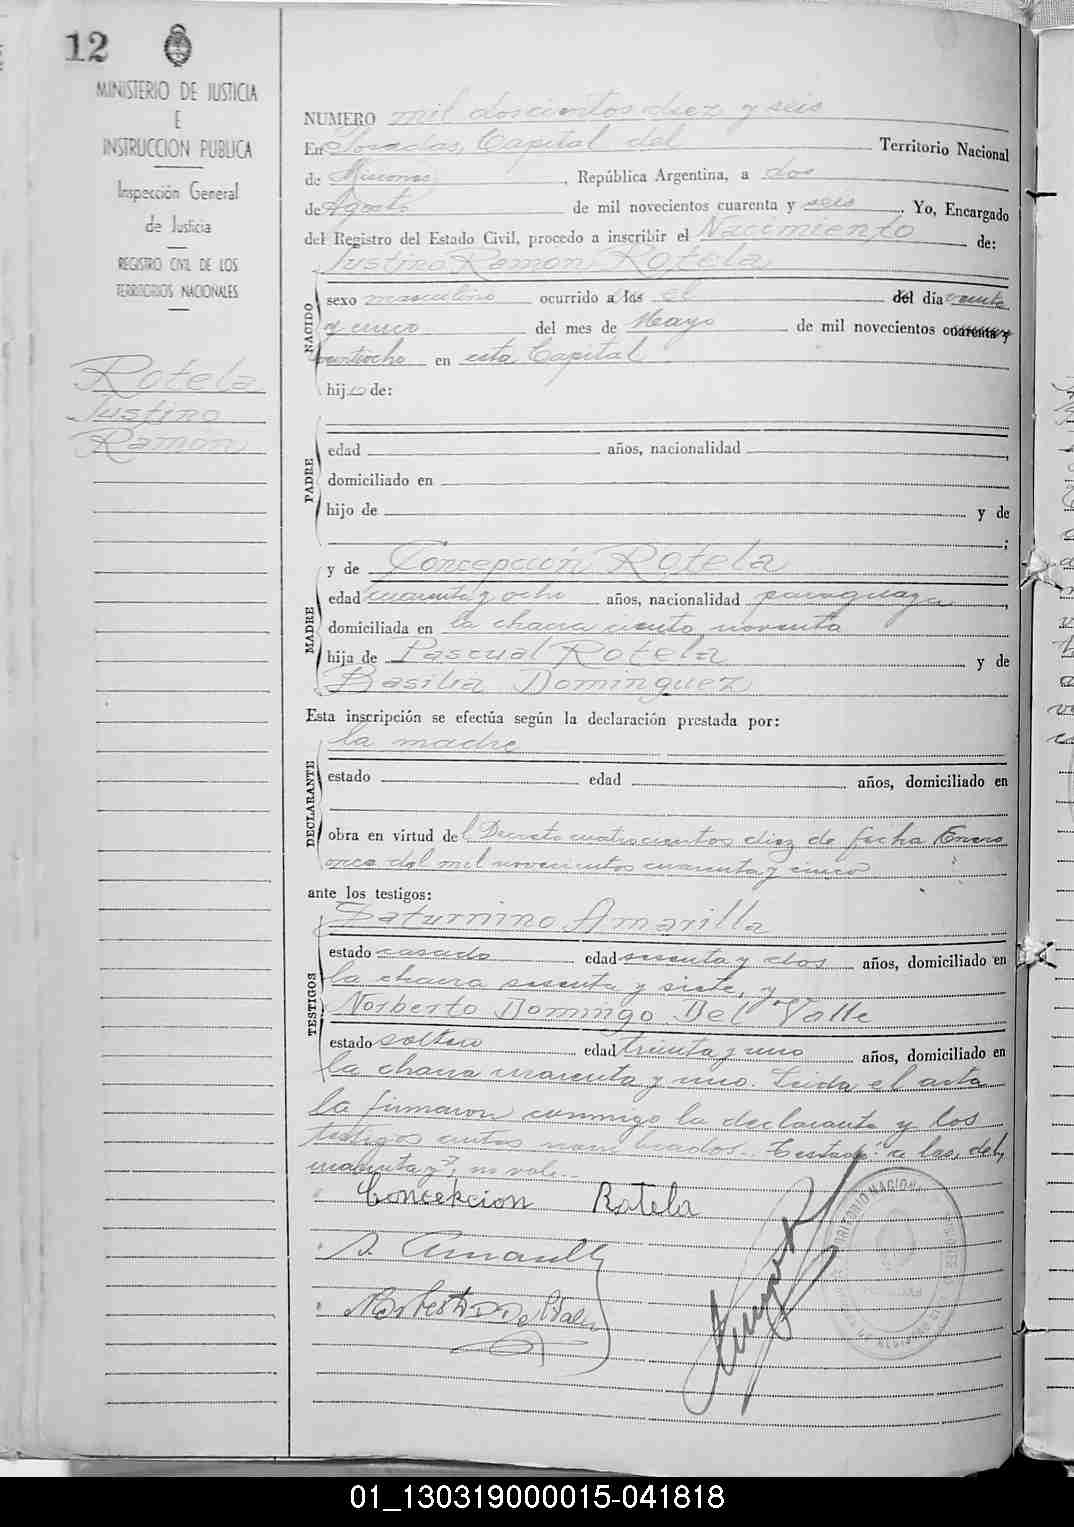 12
MINISTERIO DE JUSTICIA
E
INSTRUCCION PUBLICA
Inspección General
de Justicia
REGISTRO CIVIL DE LOS
TERRITORIOS NACIONALES
Rotela
Justino
Ramon
NUMERO mil doscientos diez y seis
En Posadas, Capital del Territorio Nacional
de Misiones, República Argentina, a dos
de Agosto de mil novecientos cuarenta y seis. Yo, Encargado
del Registro del Estado Civil, procedo a inscribir el Nacimiento de:
Justino Ramon Rotela
NACIDO
sexo masculino ocurrido a las el del día veinte
y cinco del mes de Mayo de mil novecientos cuarenta y
veintiocho en esta Capital
hijo de:
PADRE
edad años, nacionalidad
domiciliado en
hijo de y de
;
MADRE
y de Concepción Rotela
edad cuarenta y ocho años, nacionalidad paraguaya,
domiciliada en la chacra ciento noventa
hija de Pascual Rotela y de
Basilia Dominguez
Esta inscripción se efectúa según la declaración prestada por:
DECLARANTE
la madre
estado edad años, domiciliado en
obra en virtud del Decreto cuatrocientos diez de fecha Enero
once del mil novecientos cuarenta y cinco
ante los testigos:
TESTIGOS
Saturnino Amarilla
estado casado edad sesenta y dos años, domiciliado en
la chacra sesenta y siete, y
Norberto Domingo Del Valle
estado soltero edad treinta y uno años, domiciliado en
la chacra cuarenta y uno. Leida el acta
la firmaron conmigo la declarante y los
testigos antes nombrados. Testado: "a las, del,
cuarenta y", no vale.
Concepcion Rotela
S. Amarilla
Norberto D. Del Valle
01_130319000015-041818